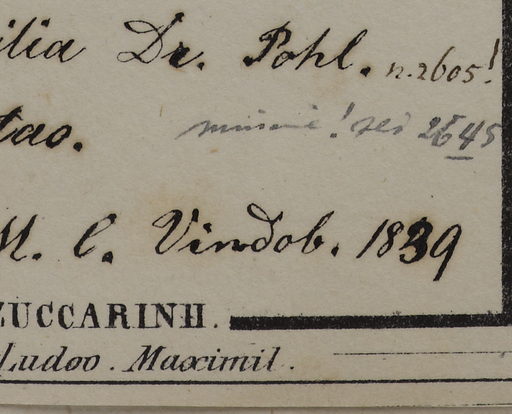 ilia Dr. Pohl. n. 2605!
tao. minime! sed 2645
M. C. Vindob. 1839
ZUCCARINII.
Ludov. Maximil.